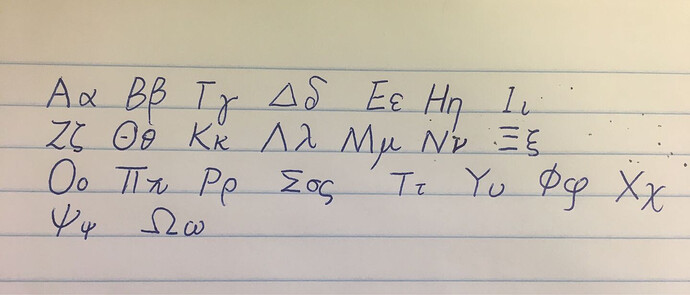 Αα Ββ Τγ Δδ Εε Ηη Ιι
Ζζ Θθ Κκ Λλ Μμ Νν Ξξ
Οο Ππ Ρρ Σσς Ττ Υυ Φφ Χχ
Ψψ Ωω